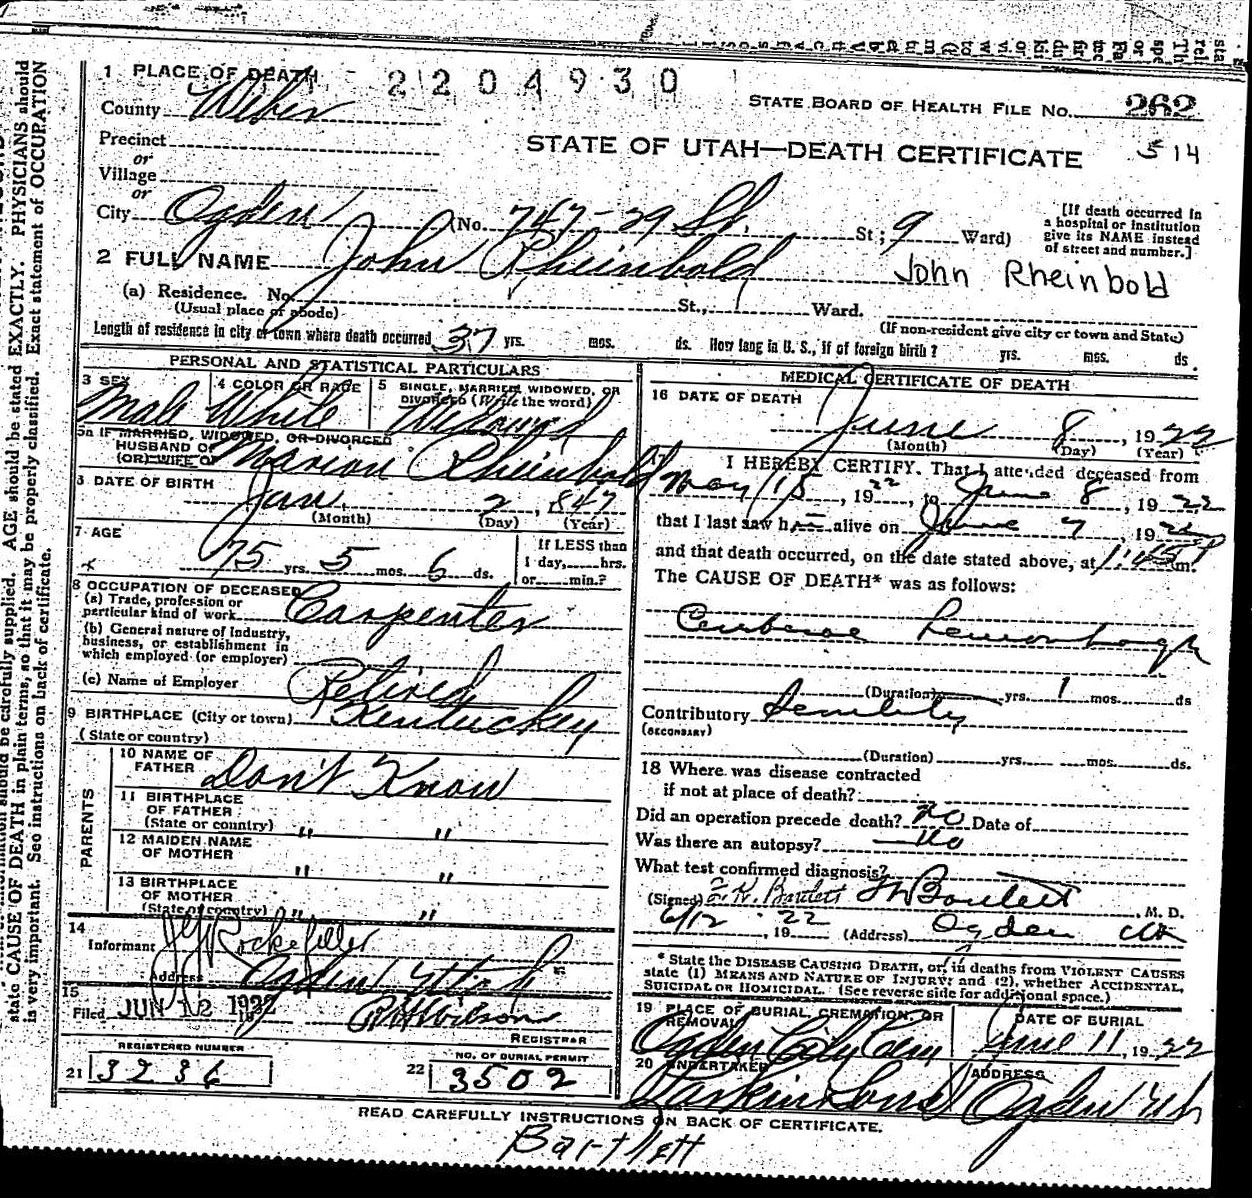 1 PLACE OF DEATH 2 2 0 4 9 3 0
County Weber
STATE BOARD OF HEALTH FILE No. 262
514
Precinct
or
Village
or
STATE OF UTAH—DEATH CERTIFICATE
City Ogden (No. 747-29 St. St; 9 Ward)
[If death occurred in
a hospital or institution
give its NAME instead
of street and number.]
2 FULL NAME John Rheinbold
John Rheinbold
(a) Residence. No. St., Ward.
(Usual place of abode) (If non-resident give city or town and State)
Length of residence in city or town where death occurred 37 yrs. mos. ds. How long in U. S., if of foreign birth? yrs. mos. ds.
PERSONAL AND STATISTICAL PARTICULARS
3 SEX Male
4 COLOR OR RACE White
5 SINGLE, MARRIED, WIDOWED, OR
DIVORCED (Write the word)
Widowed
5a IF MARRIED, WIDOWED, OR DIVORCED
HUSBAND OF
(OR) WIFE OF Marion Rheinbold
DATE OF BIRTH
Jan. 2, 847
(Month) (Day) (Year)
7 AGE
75 yrs. 5 mos. 6 ds.
If LESS than
1 day, hrs.
or min.?
8 OCCUPATION OF DECEASED
(a) Trade, profession or
particular kind of work Carpenter
(b) General nature of Industry,
business, or establishment in
which employed (or employer)
(c) Name of Employer Retired
9 BIRTHPLACE (City or town) Kentuckey
(State or country)
PARENTS
10 NAME OF
FATHER Don't Know
11 BIRTHPLACE
OF FATHER
(State or country) " "
12 MAIDEN NAME
OF MOTHER " "
13 BIRTHPLACE
OF MOTHER
(State or country) " "
14
Informant Rockefeller
Address Ogden Utah
15
Filed JUN 12 1922 Wilson
REGISTRAR
REGISTERED NUMBER
21 3236
NO. OF BURIAL PERMIT
22 3502
MEDICAL CERTIFICATE OF DEATH
16 DATE OF DEATH
June 8, 1922
(Month) (Day) (Year)
17 I HEREBY CERTIFY. That I attended deceased from
May 15, 1922, to June 8, 1922
that I last saw h alive on June 7, 1922
and that death occurred, on the date stated above, at 1:45 P m.
The CAUSE OF DEATH* was as follows:
(Duration) yrs. 1 mos. ds
Contributory
(SECONDARY)
(Duration) yrs. mos. ds.
18 Where was disease contracted
if not at place of death?
Did an operation precede death? no Date of
Was there an autopsy? no
What test confirmed diagnosis?
(Signed) Bartlett M. D.
6/12, 1922 (Address) Ogden
* State the DISEASE CAUSING DEATH, or, in deaths from VIOLENT CAUSES
state (1) MEANS AND NATURE OF INJURY; and (2), whether ACCIDENTAL,
SUICIDAL OR HOMICIDAL. (See reverse side for additional space.)
19 PLACE OF BURIAL, CREMATION, OR
REMOVAL
Ogden City Cem
DATE OF BURIAL
June 11, 1922
20 UNDERTAKER
Larkin & Sons
ADDRESS
Ogden Utah
READ CAREFULLY INSTRUCTIONS ON BACK OF CERTIFICATE.
Bartlett
should be carefully supplied. AGE should be stated EXACTLY. PHYSICIANS should
state CAUSE OF DEATH in plain terms, so that it may be properly classified. Exact statement of OCCUPATION
is very important. See instructions on back of certificate.